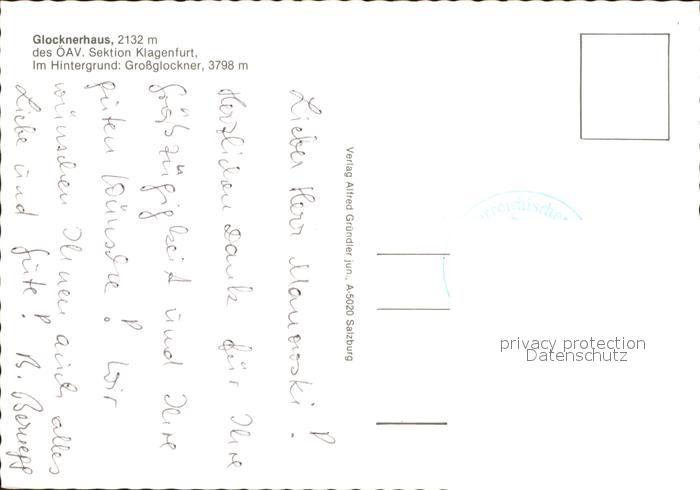 Glocknerhaus, 2132 m
des ÖAV. Sektion Klagenfurt,
Im Hintergrund: Großglockner, 3798 m
Lieber Herr !
Herzlichen Dank für Ihre
Großzügigkeit und Ihre
guten Wünsche! Wir
wünschen Ihnen auch alles
Liebe und Gute! B.
Verlag Alfred Gründler jun., A-5020 Salzburg
privacy protection
Datenschutz